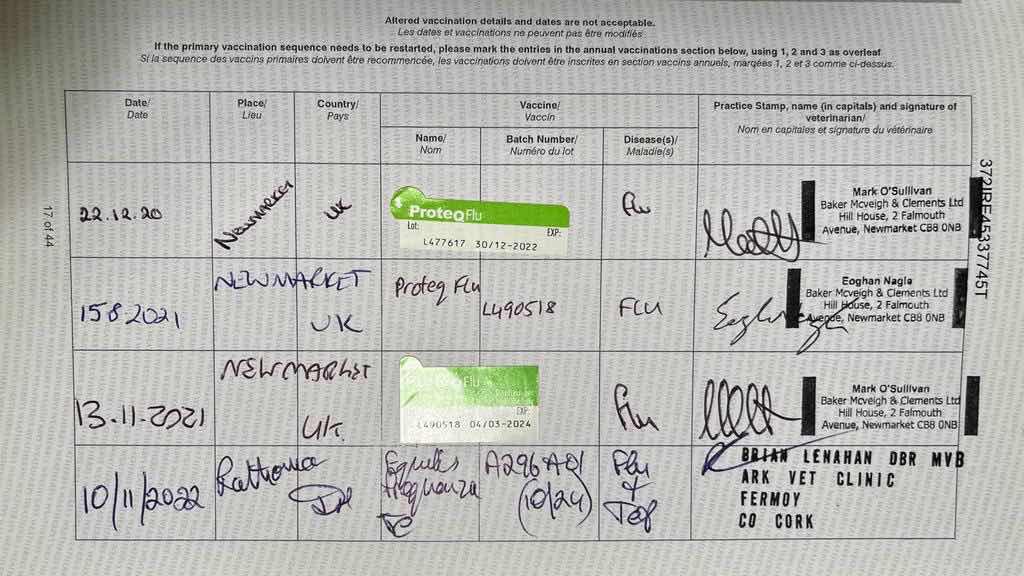 Altered vaccination details and dates are not acceptable.
Les dates et vaccinations ne peuvent pas être modifiés
If the primary vaccination sequence needs to be restarted, please mark the entries in the annual vaccinations section below, using 1, 2 and 3 as overleaf
Si la sequence des vaccins primaires doivent être recommencée, les vaccinations doivent être inscrites en section vaccins annuels, marqées 1, 2 et 3 comme ci-dessus.
Date/
Date
Place/
Lieu
Country/
Pays
Vaccine/
Vaccin
Name/
Nom
Batch Number/
Numéro du lot
Disease(s)/
Maladie(s)
Practice Stamp, name (in capitals) and signature of
veterinarian/
Nom en capitales et signature du vétérinaire
22.12.20
Newmarket
UK
ProteqFlu
Lot: EXP:
L477617 30/12-2022
Flu
Mark O'Sullivan
Baker Mcveigh & Clements Ltd
Hill House, 2 Falmouth
Avenue, Newmarket CB8 0NB
158.2021
NEWMARKET
UK
Proteq Flu
L490518
FLU
Eoghan Nagle
Baker Mcveigh & Clements Ltd
Hill House, 2 Falmouth
Avenue, Newmarket CB8 0NB
13.11.2021
NEWMARKET
UK.
ProteqFlu
EXP:
L490518 04/03-2024
Flu
Mark O'Sullivan
Baker Mcveigh & Clements Ltd
Hill House, 2 Falmouth
Avenue, Newmarket CB8 0NB
10/11/2022
Equilis
Te
A296A01
(10/24)
Flu
+
BRIAN LENAHAN DBR MVB
ARK VET CLINIC
FERMOY
CO CORK
17 of 44
372IRE45337745T